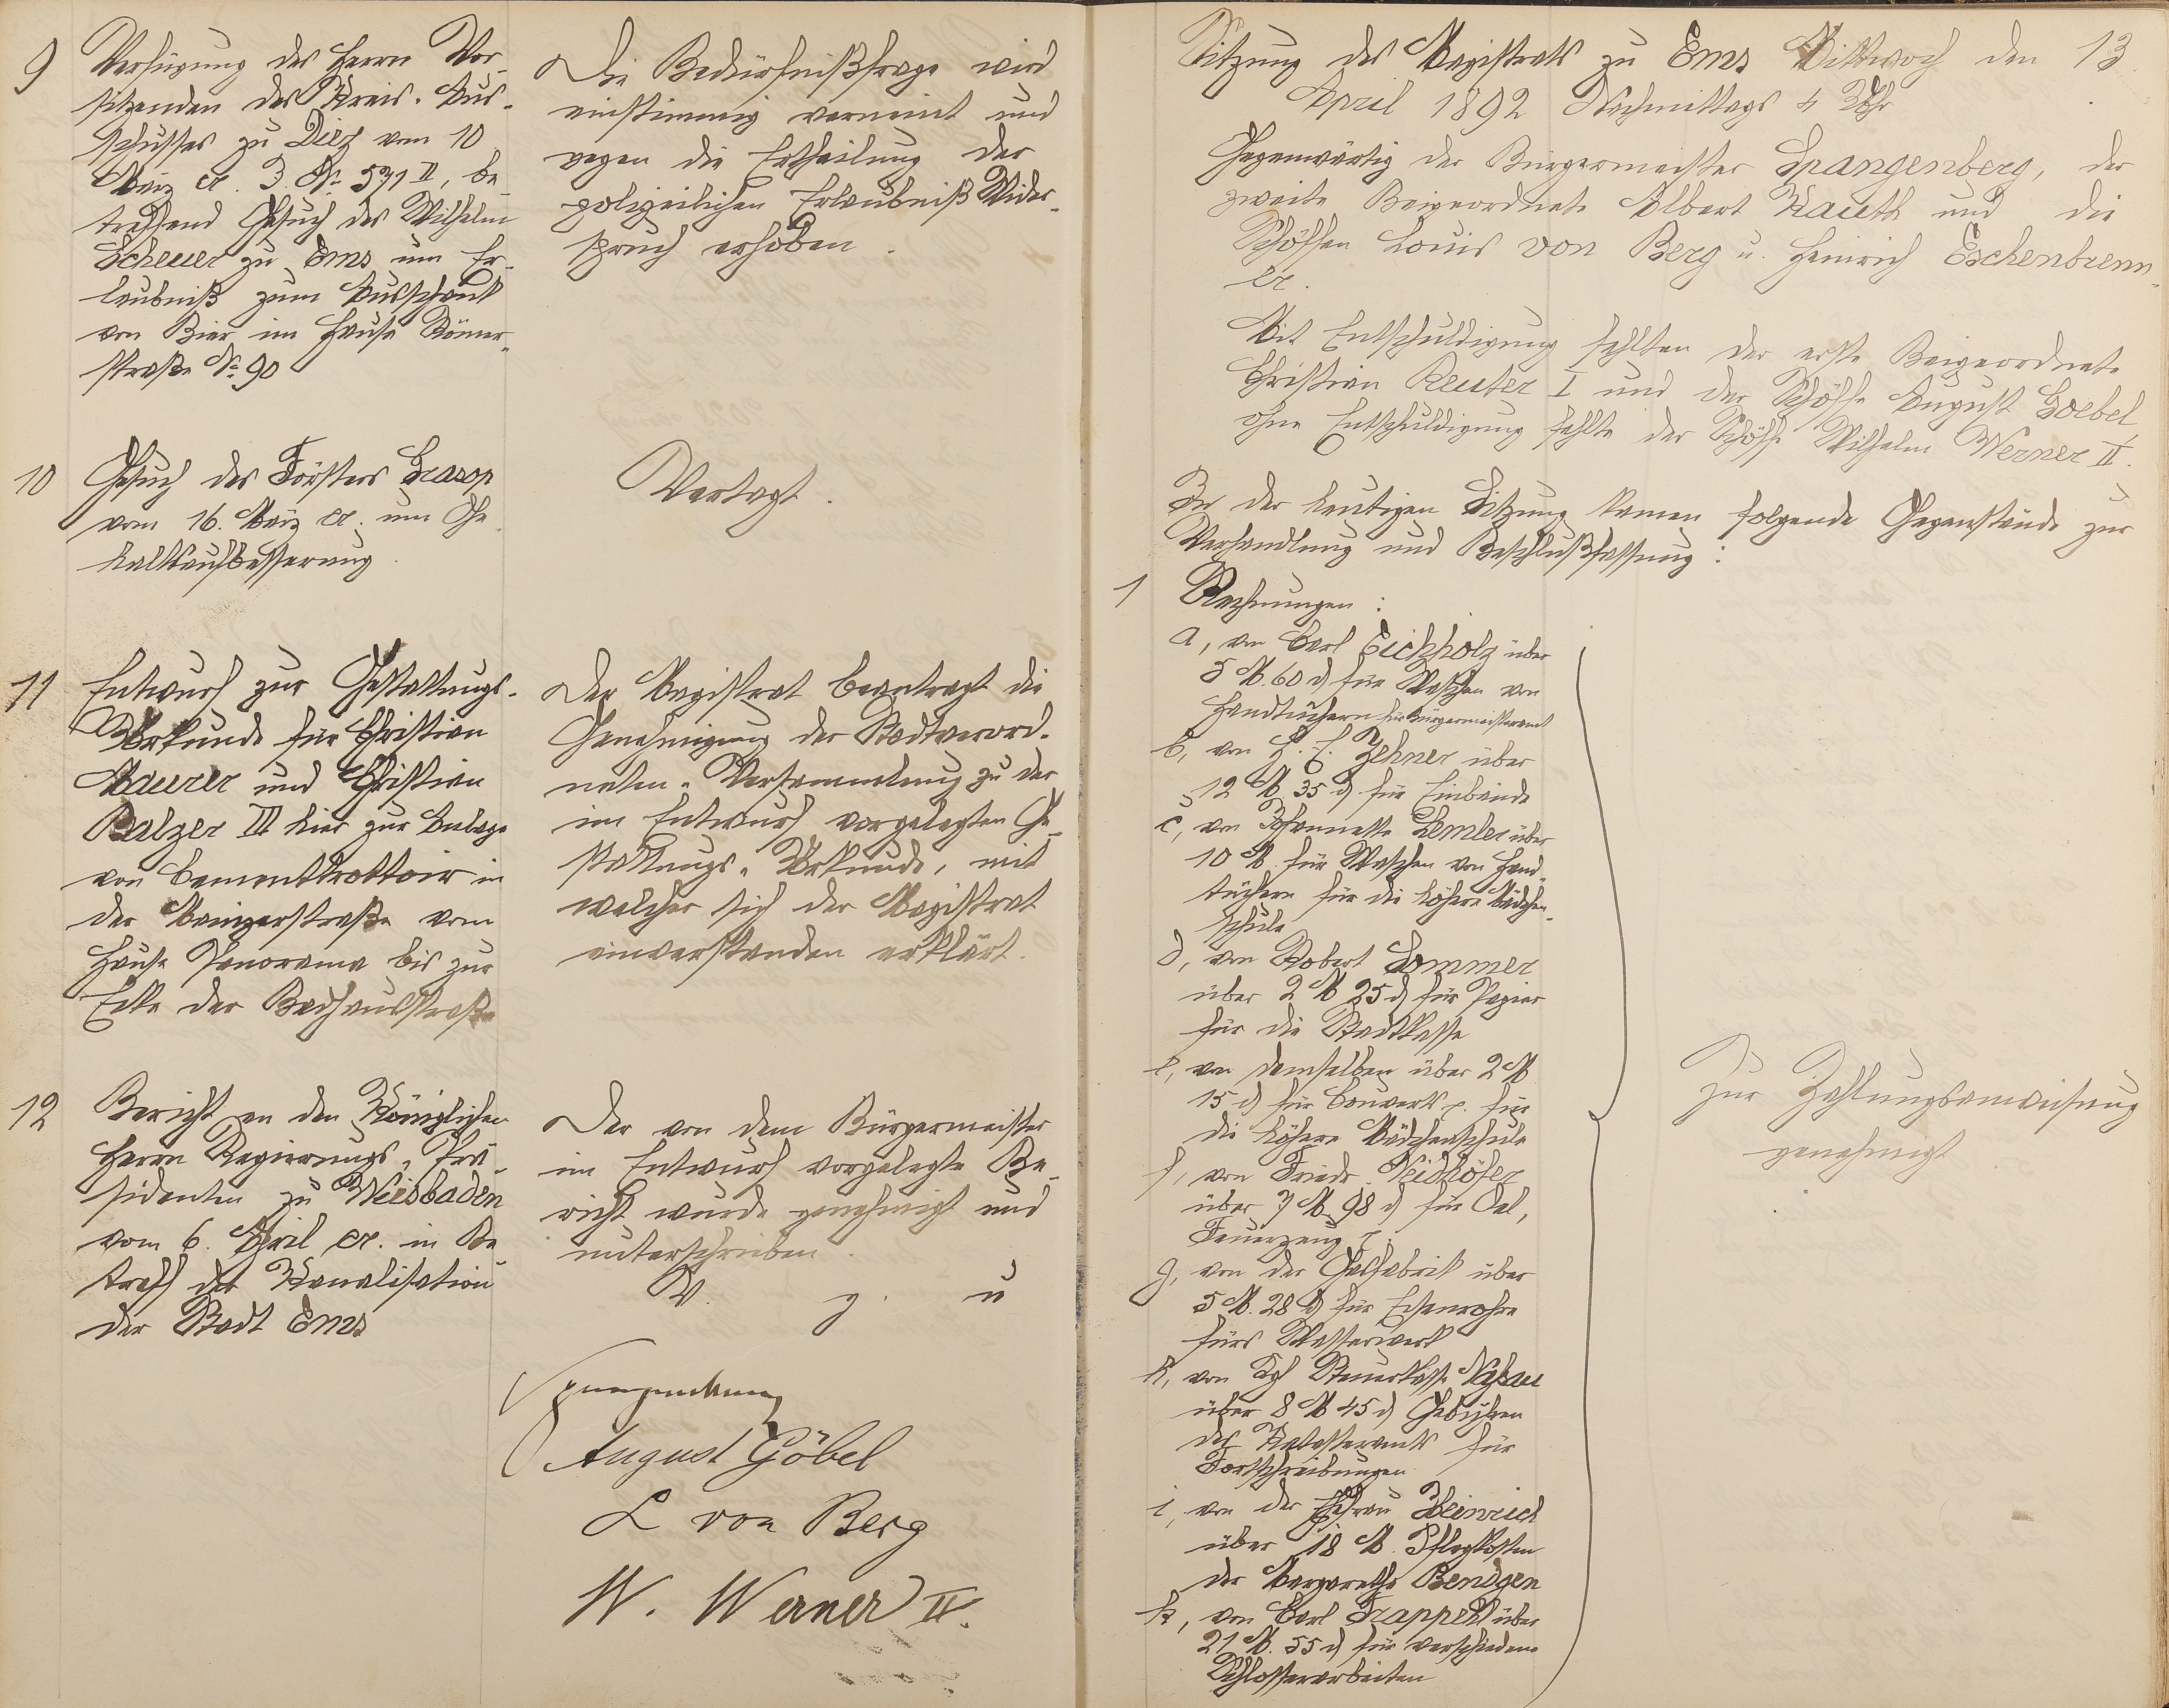 9
Verfügung des Herrn Vor-
sitzenden des Kreis-Aus-
schusses zu Diez vom 10
März cr. J. No 571 II, be-
treffend Gesuch des Wilhelm
Scheuer zu Ems um Er-
laubniß zum Ausschank
von Bier im Hause Römer-
straße No 90
Die Bedürfnißfrage wird
einstimmig verneint und
gegen die Ertheilung der
polizeilichen Erlaubniß Wider-
spruch erhoben.
10
Gesuch des Försters
vom 16. März cr. um Ge-
haltsaufbesserung.
Vertagt.
11
Entwurf zur Gestattungs-
Urkunde für Christian
Maurer und Christian
Balzer III hier zur Anlage
von Cementtrottoir in
der Mainzerstraße vom
Hause Panorama bis zur
Ecke der Badhausstraße
Der Magistrat beantragt die
Genehmigung der Stadtverord-
neten-Versammlung zu der
im Entwurf vorgelegten Ge-
stattungs-Urkunde, mit
welcher sich der Magistrat
einverstanden erklärt.
12
Bericht an den Königlichen
Herrn Regierungs-Prä-
sidenten zu Wiesbaden
vom 6. April cr. in Be-
treff der Kanalisation
der Stadt Ems
Der von dem Bürgermeister
im Entwurf vorgelegte Be-
richt wurde genehmigt und
unterschrieben.
V. g. u
Spangenberg
August Göbel
L von Berg
W. Werner II.
Sitzung des Magistrats zu Ems Mittwoch den 13.
April 1892 Nachmittags 4 Uhr
Gegenwärtig der Bürgermeister Spangenberg, der
zweite Beigeordnete Albert Kauth und die
Schöffen Louis von Berg u. Heinrich Eschenbrenn-
er.
Mit Entschuldigung fehlten der erste Beigeordnete
Christian Reuter I und der Schöffe August Goebel
ohne Entschuldigung fehlte der Schöffe Wilhelm Werner II.
In der heutigen Sitzung kamen folgende Gegenstände zur
Verhandlung und Beschlußfassung:
1
Rechnungen:
a, von Carl Eichholz über
5 M. 60 d für Waschen von
Handtüchern für Bürgermeisteramt
b, von H. C. Zehner über
12 M 35 d für Einbände
c, von Johannette Lemler über
10 M für Waschen von Hand-
tüchern für die höhere Mädchen-
schule
d, von Robert Sommer
über 2 M 25 d für Papier
für die Stadtkasse
e, von demselben über 2 M
15 d für Couverts p. für
die höhere Mädchenschule
f, von Friedr. Neidhöfer
über 7 M 98 d für Oel,
Feuerzeug p.
g, von der Gasfabrik über
5 M. 28 d für Eisenrohre
fürs Wasserwerk
h, von Kgl Steuerkasse Naßau
über 8 M 45 d Gebühren
des Katasteramts für
Fortschreibungen
i, von der Ehefrau Heinrich
über 18 M. Pflegkosten
der Margarethe Bendgen
k, von Carl Trappehl über
21 M. 55 d für verschiedene
Schlosserarbeiten
Zur Zahlungsanweisung
genehmigt